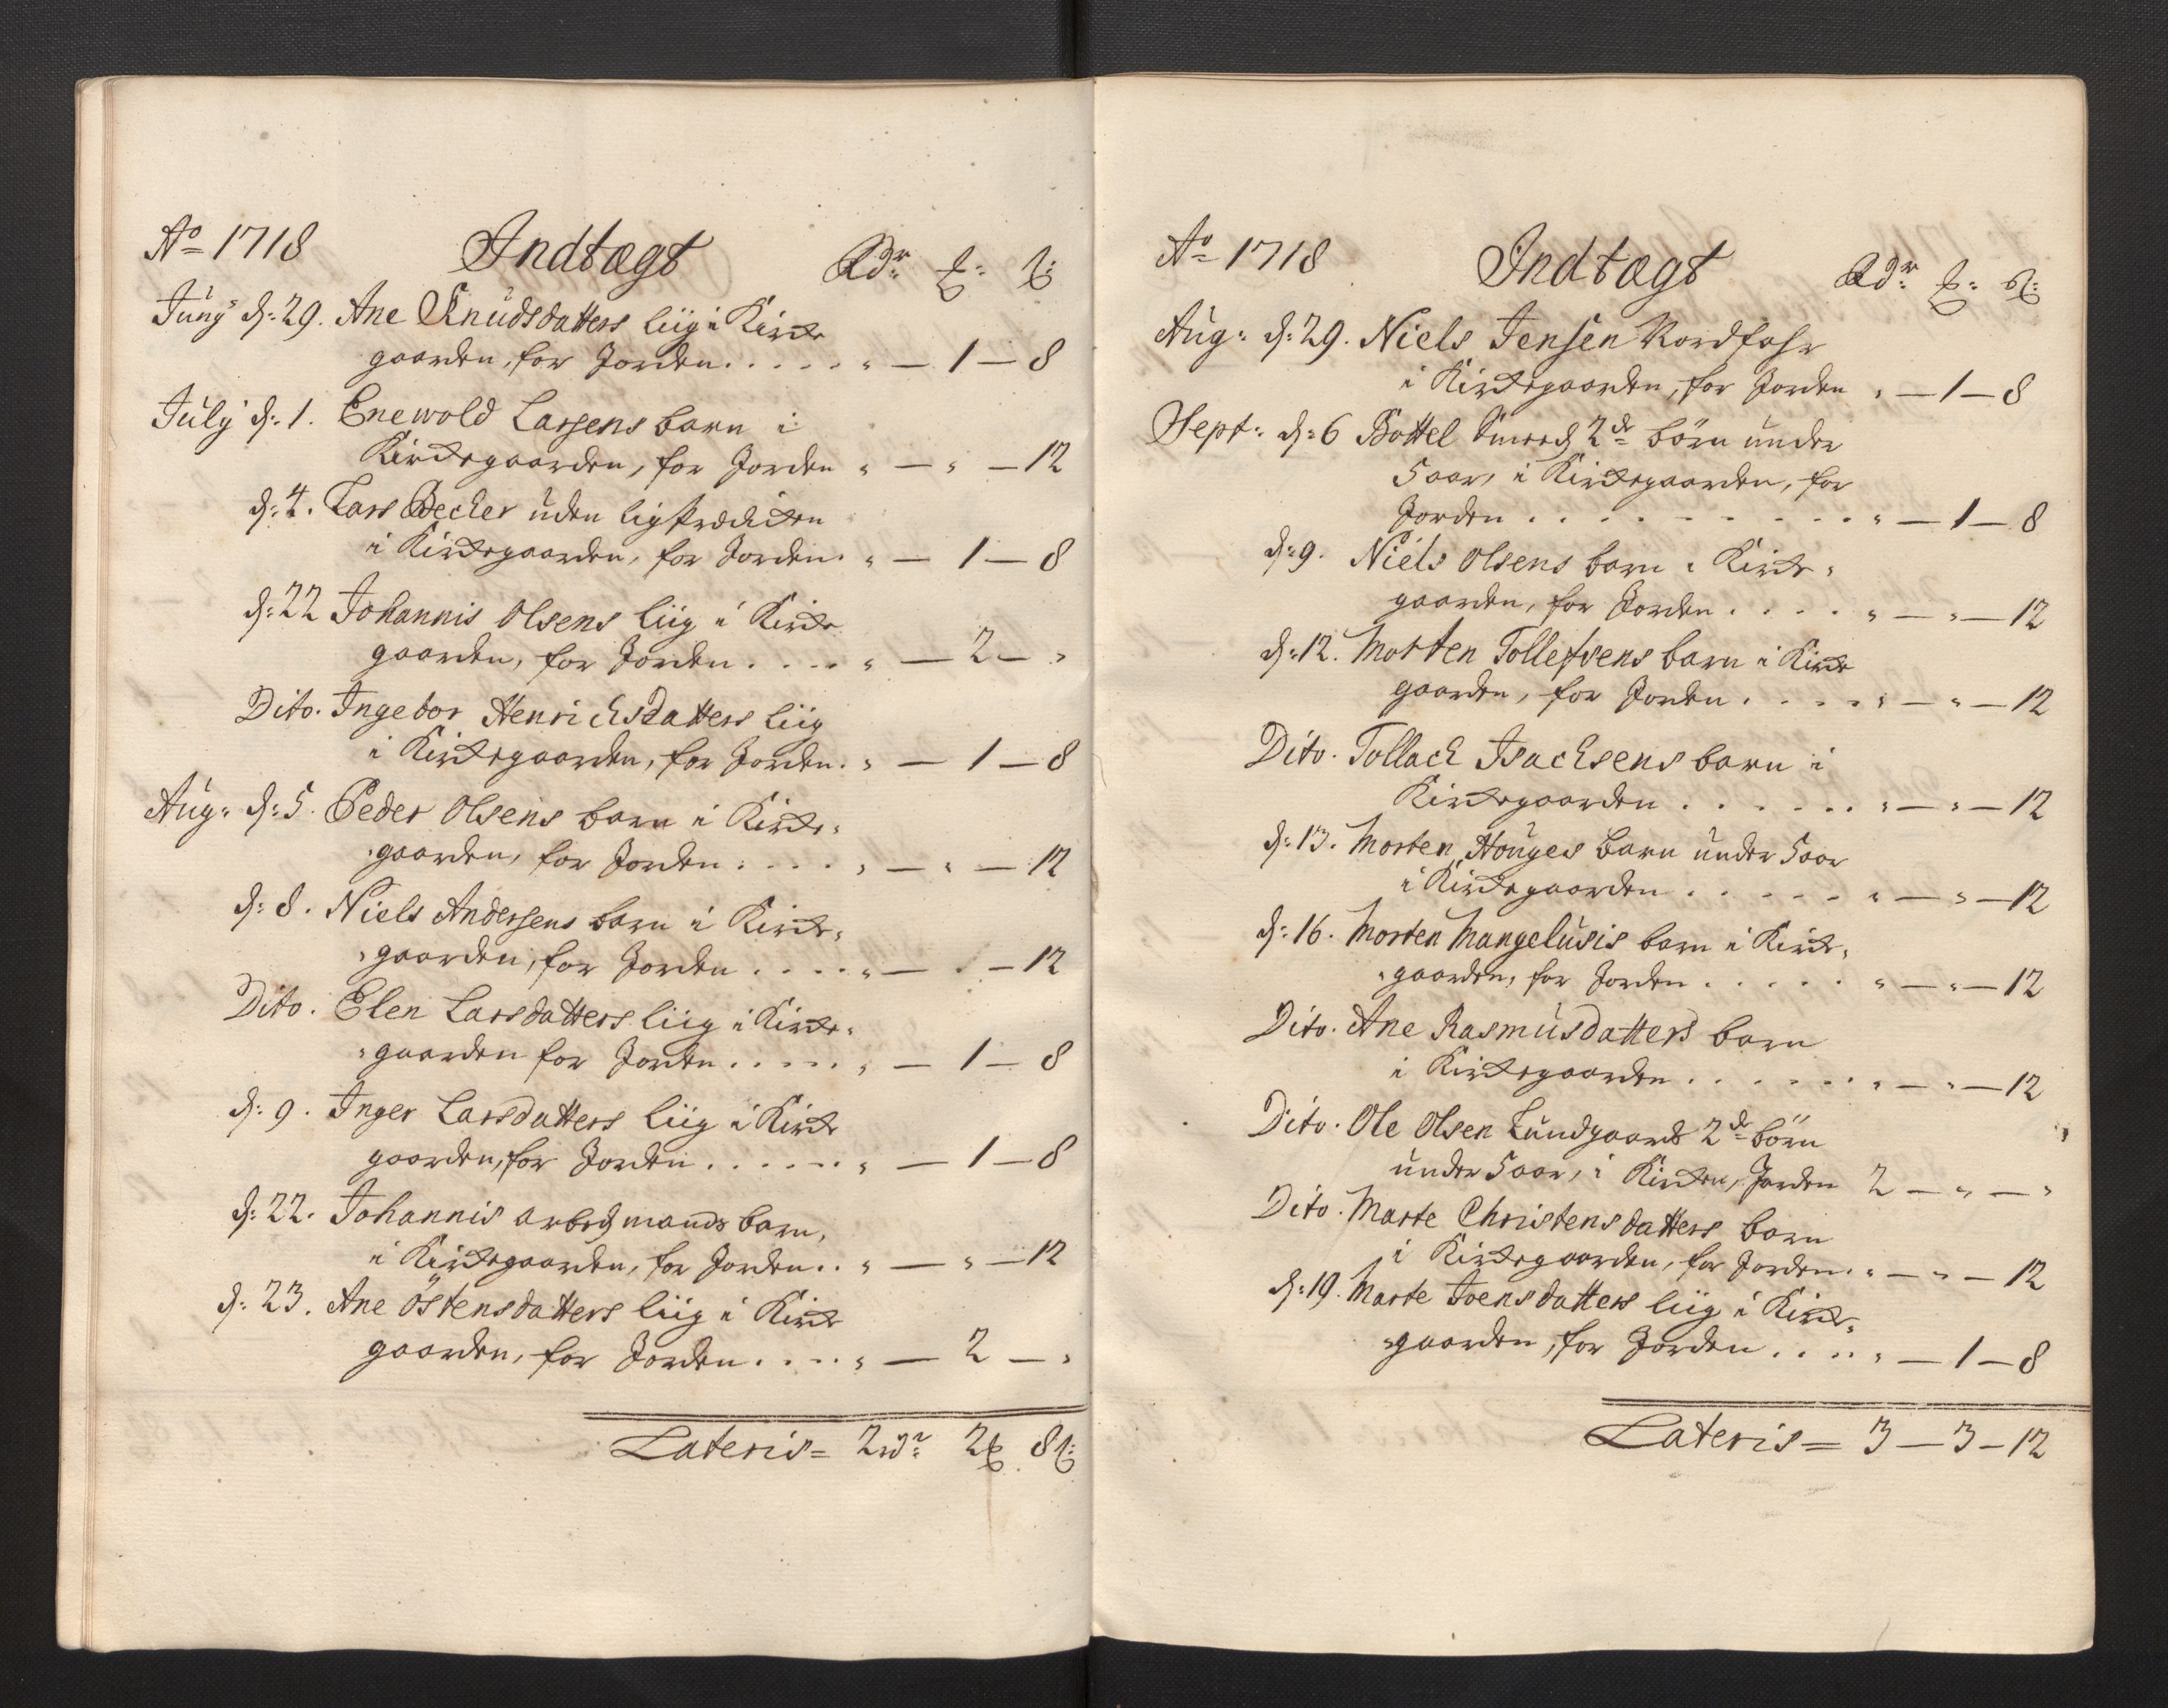 Ao 1718 Indtægt Rdr: ℳ: ß:
Juny d: 29. Ane Knudsdatters liig i Kirke
gaarden, for Jorden..... " — 1 — 8
July d: 1. Enewold Larsens barn i
Kirkegaarden, for Jorden " — " — 12
d: 4. Lars Becker uden ligprædiken
i Kirkegaarden, for Jorden. " — 1 — 8
d: 22 Johannis Olsens liig i Kirke
gaarden, for Jorden.... " — 2 — "
Dito. Ingebor Henrichsdatters liig
i Kirkegaarden, for Jorden. " — 1 — 8
Aug: d: 5. Peder Olsens barn i Kirke-
gaarden, for Jorden.... " — " — 12
d: 8. Niels Andersens barn i Kirke-
gaarden, for Jorden.... " — " — 12
Dito. Elen Larsdatters liig i Kirke-
gaarden for Jorden..... " — 1 — 8
d: 9. Inger Larsdatters liig i Kirke
gaarden, for Jorden...... " — 1 — 8
d: 22. Johannis arbedsmands barn,
i Kirkegaarden, for Jorden.. " — " — 12
d: 23. Ane Östensdatters liig i Kirke
gaarden, for Jorden.... " — 2 — "
Lateris = 2 rdr: 2 ℳ 8 ß:
Ao 1718 Indtægt Rdr: ℳ: ß:
Aug: d: 29. Niels Jensen Nordfahr
i Kirkegaarden, for Jorden " — 1 — 8
Sept: d: 6 Bottel Smeds 2de börn under
5 aar, i Kirkegaarden, for
Jorden.......... " — 1 — 8
d: 9. Niels Olsens barn i Kirke-
gaarden, for Jorden.... " — " — 12
d: 12. Morten Tollefsens barn i Kirke
gaarden, for Jorden..... " — " — 12
Dito. Tollach Isachsens barn i
Kirkegaarden....... " — " — 12
d: 13. Morten Houges barn under 5 aar
i Kirkegaarden...... " — " — 12
d: 16. Morten Mangelusis barn i Kirke-
gaarden, for Jorden..... " — " — 12
Dito. Ane Rasmusdatters barn
i Kirkegaarden....... " — " — 12
Dito. Ole Olsen Lundgaards 2de börn
under 5 aar, i Kirken, Jorden 2 — " — "
Dito. Marte Christensdatters barn
i Kirkegaarden, for Jorden. " — " — 12
d: 19. Marte Joensdatters liig i Kirke-
gaarden, for Jorden.... " — 1 — 8
Lateris = 3 — 3 — 12